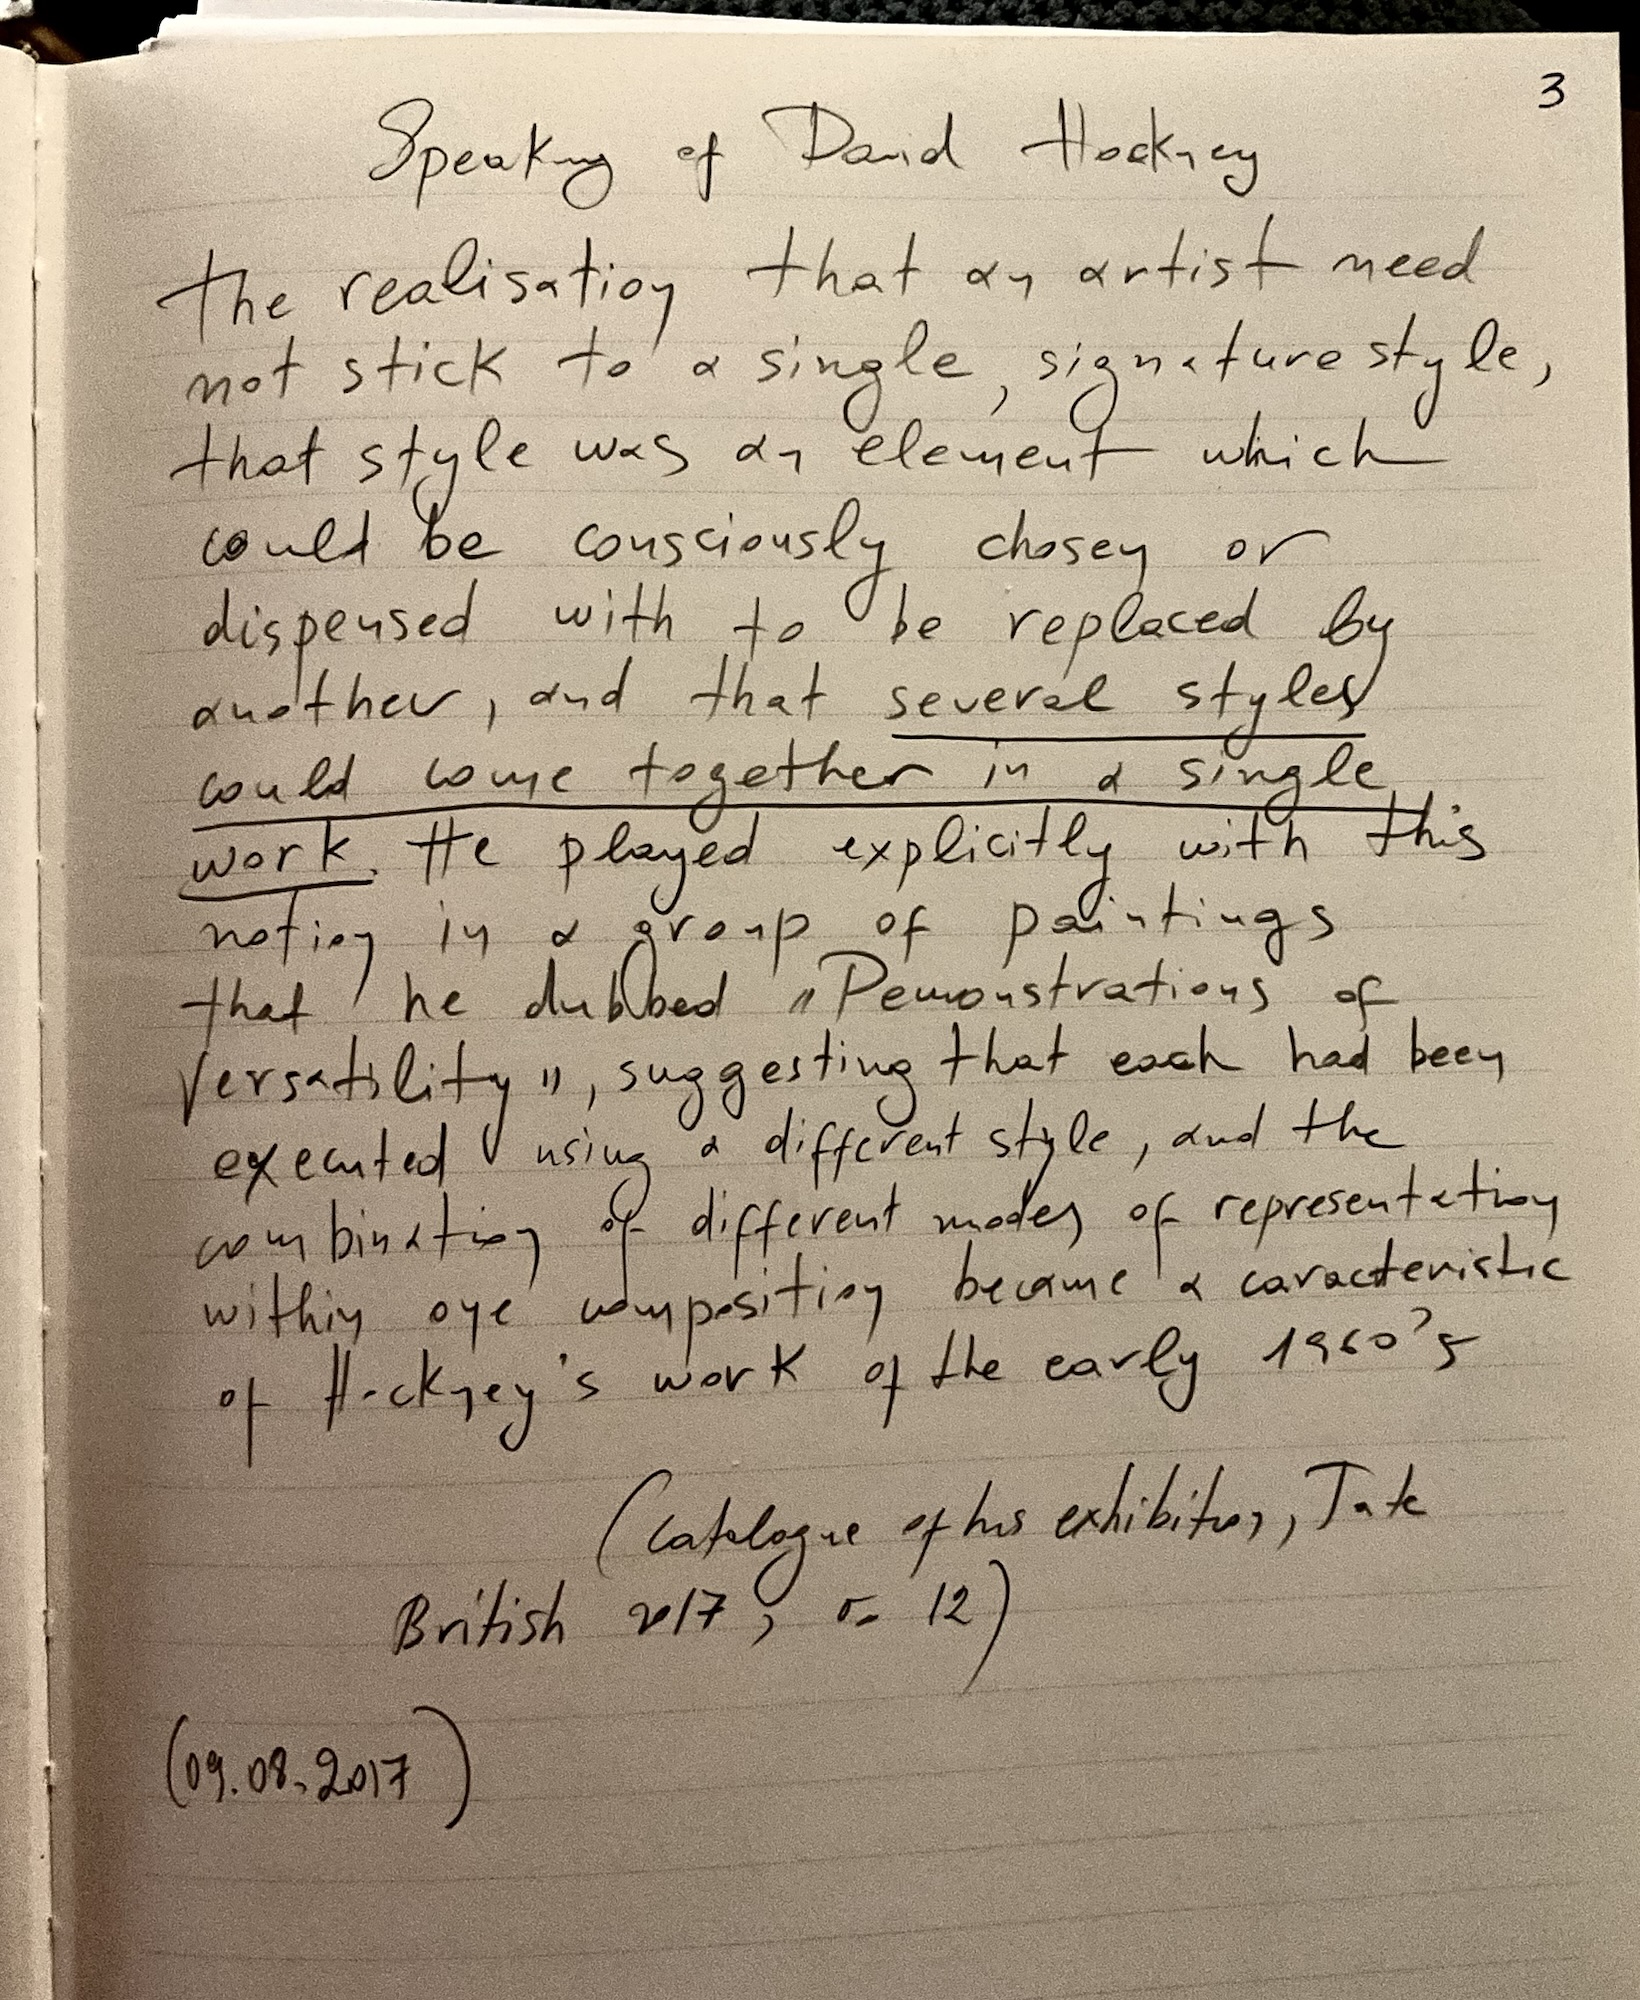 3
Speaking of David Hockney
the realisation that an artist need
not stick to a single, signature style,
that style was an element which
could be consciously chosen or
dispensed with to be replaced by
another, and that several styles
could come together in a single
work. He played explicitly with this
notion in a group of paintings
that he dubbed „Demonstrations of
Versatility", suggesting that each had been
executed using a different style, and the
combination of different modes of representation
within one composition became a caracteristic
of Hockney's work of the early 1960's
(Catalogue of his exhibition, Tate
British 2017, σ. 12)
(09.08.2017)